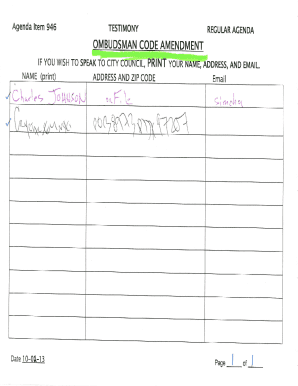 Agenda Item 946 TESTIMONY REGULAR AGENDA
OMBUDSMAN CODE AMENDMENT
IF YOU WISH TO SPEAK TO CITY COUNCIL, PRINT YOUR NAME, ADDRESS, AND EMAIL.
NAME (print) ADDRESS AND ZIP CODE Email
✓ Charles JOHNSON on File
✓ 97207
Date 10-02-13 Page 1 of 1